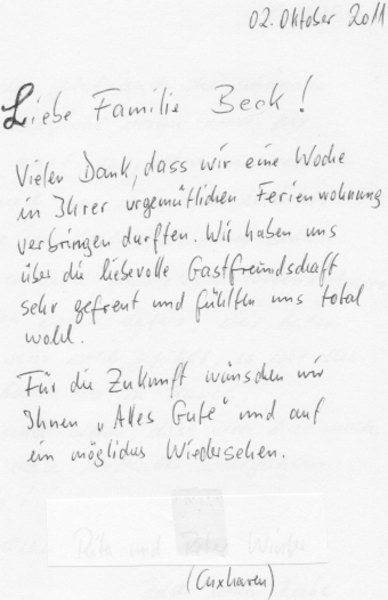 02. Oktober 2011
Liebe Familie Beck!
Vielen Dank, dass wir eine Woche
in Ihrer urgemütlichen Ferienwohnung
verbringen durften. Wir haben uns
über die liebevolle Gastfreundschaft
sehr gefreut und fühlten uns total
wohl.
Für die Zukunft wünschen wir
Ihnen „Alles Gute" und auf
ein mögliches Wiedersehen.
und
(Cuxhaven)